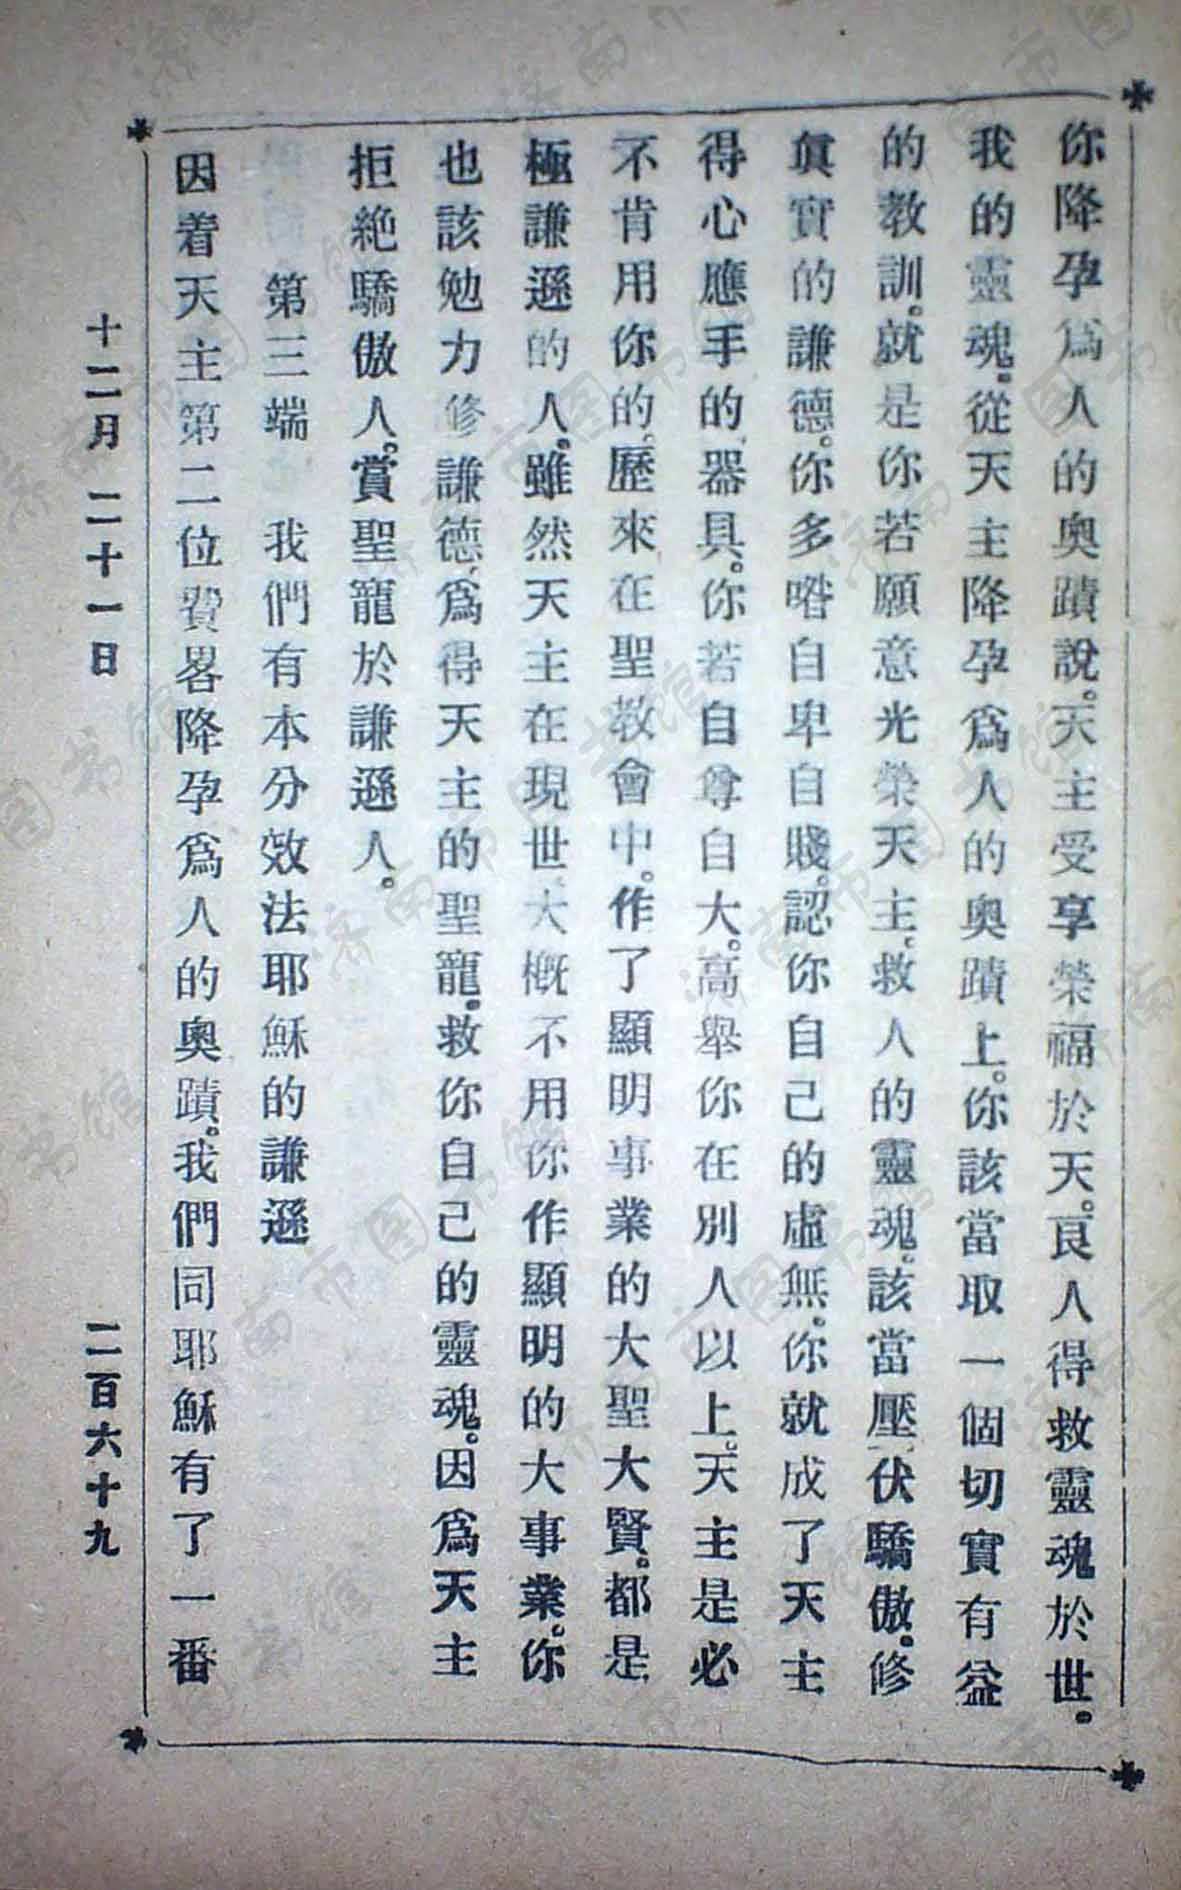 你降孕爲人的奧蹟說。天主受享榮福於天。良人得救靈魂於世。
我的靈魂。從天主降孕爲人的奧蹟上。你該當取一個切實有益
的教訓。就是你若願意光榮天主。救人的靈魂。該當壓伏驕傲。修
眞實的謙德。你多喒自卑自賤。認你自己的虛無。你就成了天主
得心應手的器具。你若自尊自大。高舉你在別人以上。天主是必
不肯用你的。歷來在聖教會中。作了顯明事業的大聖大賢。都是
極謙遜的人。雖然天主在現世。大槪不用你作顯明的大事業。你
也該勉力修謙德。爲得天主的聖寵。救你自己的靈魂。因爲天主
拒絕驕傲人。賞聖寵於謙遜人。
第三端 我們有本分效法耶穌的謙遜
因着天主第二位費畧降孕爲人的奧蹟。我們同耶穌有了一番
十二月 二十一日 二百六十九
济南市图书馆